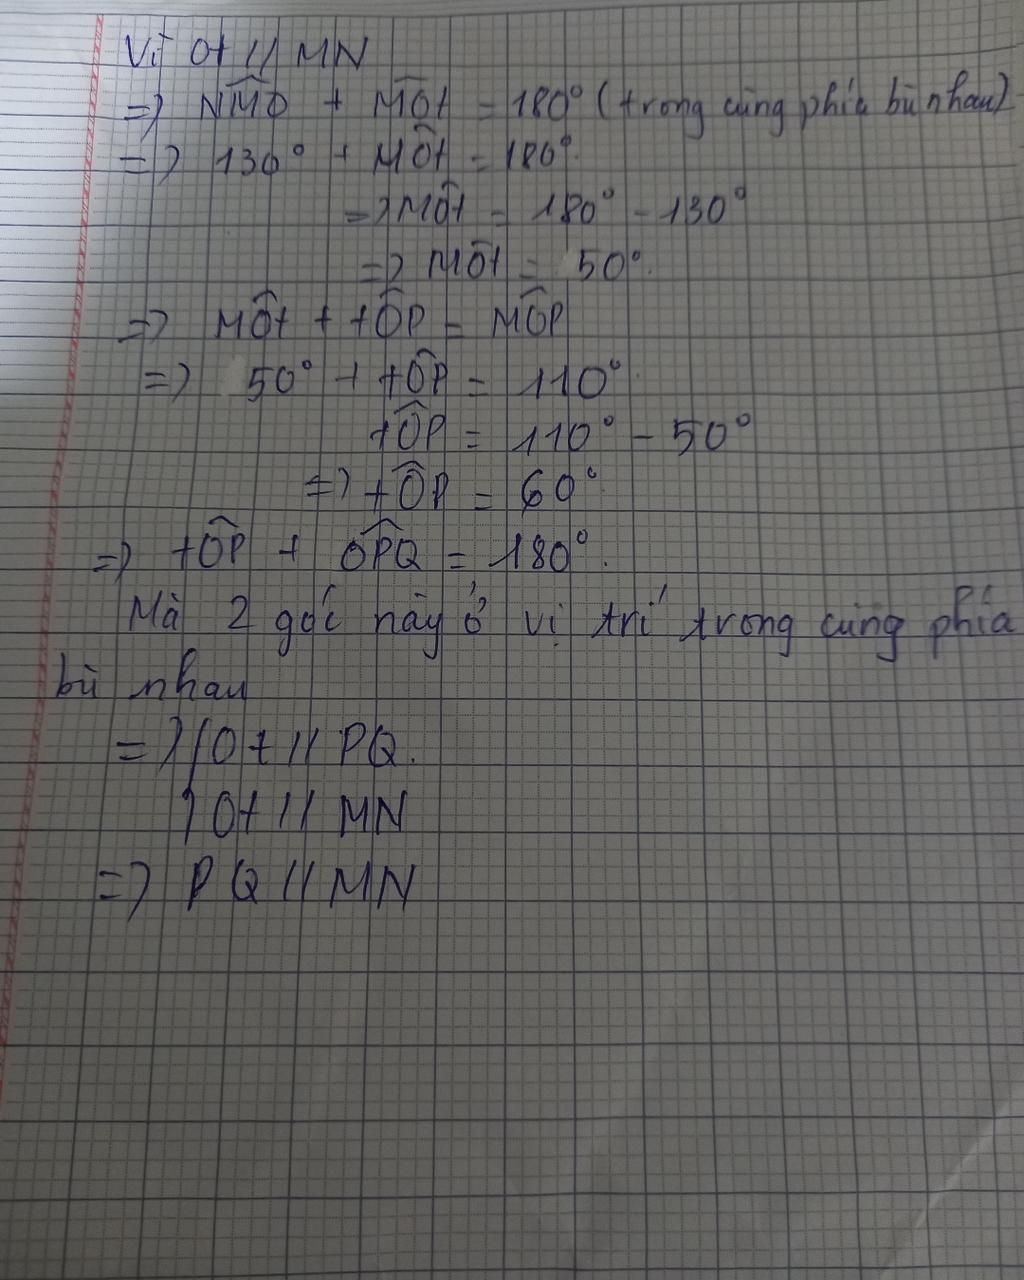 Vì Ot // MN
=> NM̂O + MÔt = 180° (trong cùng phía bù nhau)
=> 130° + MÔt = 180°.
=> MÔt = 180° - 130°
=> MÔt = 50°.
=> MÔt + tÔP = MÔP
=> 50° + tÔP = 110°.
tÔP = 110° - 50°
=> tÔP = 60°.
=> tÔP + OP̂Q = 180°.
Mà 2 góc này ở vị trí trong cùng phía
bù nhau
=> { Ot // PQ.
Ot // MN
=> PQ // MN